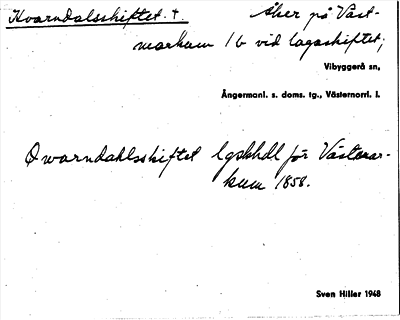 Kvarndalsskiftet. †. Åker på Väst-
markum 16 vid lagaskiftet,
Vibyggerå sn,
Ångermanl. s. doms. tg., Västernorrl. l.
Qwarndahlsskiftet lgskhdl för Västmar-
kum 1858.
Sven Hiller 1948